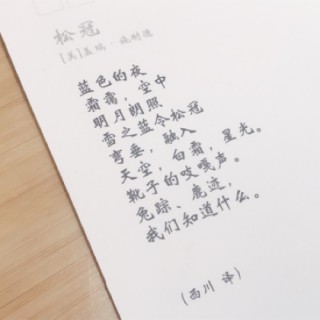 松冠
[美]盖瑞·施耐德
蓝色的夜
霜雾，空中
明月朗照
雪之蓝令松冠
弯垂，融入
天空，白霜，星光。
靴子的吱嘎声。
兔踪、鹿迹，
我们知道什么。
(西川 译)